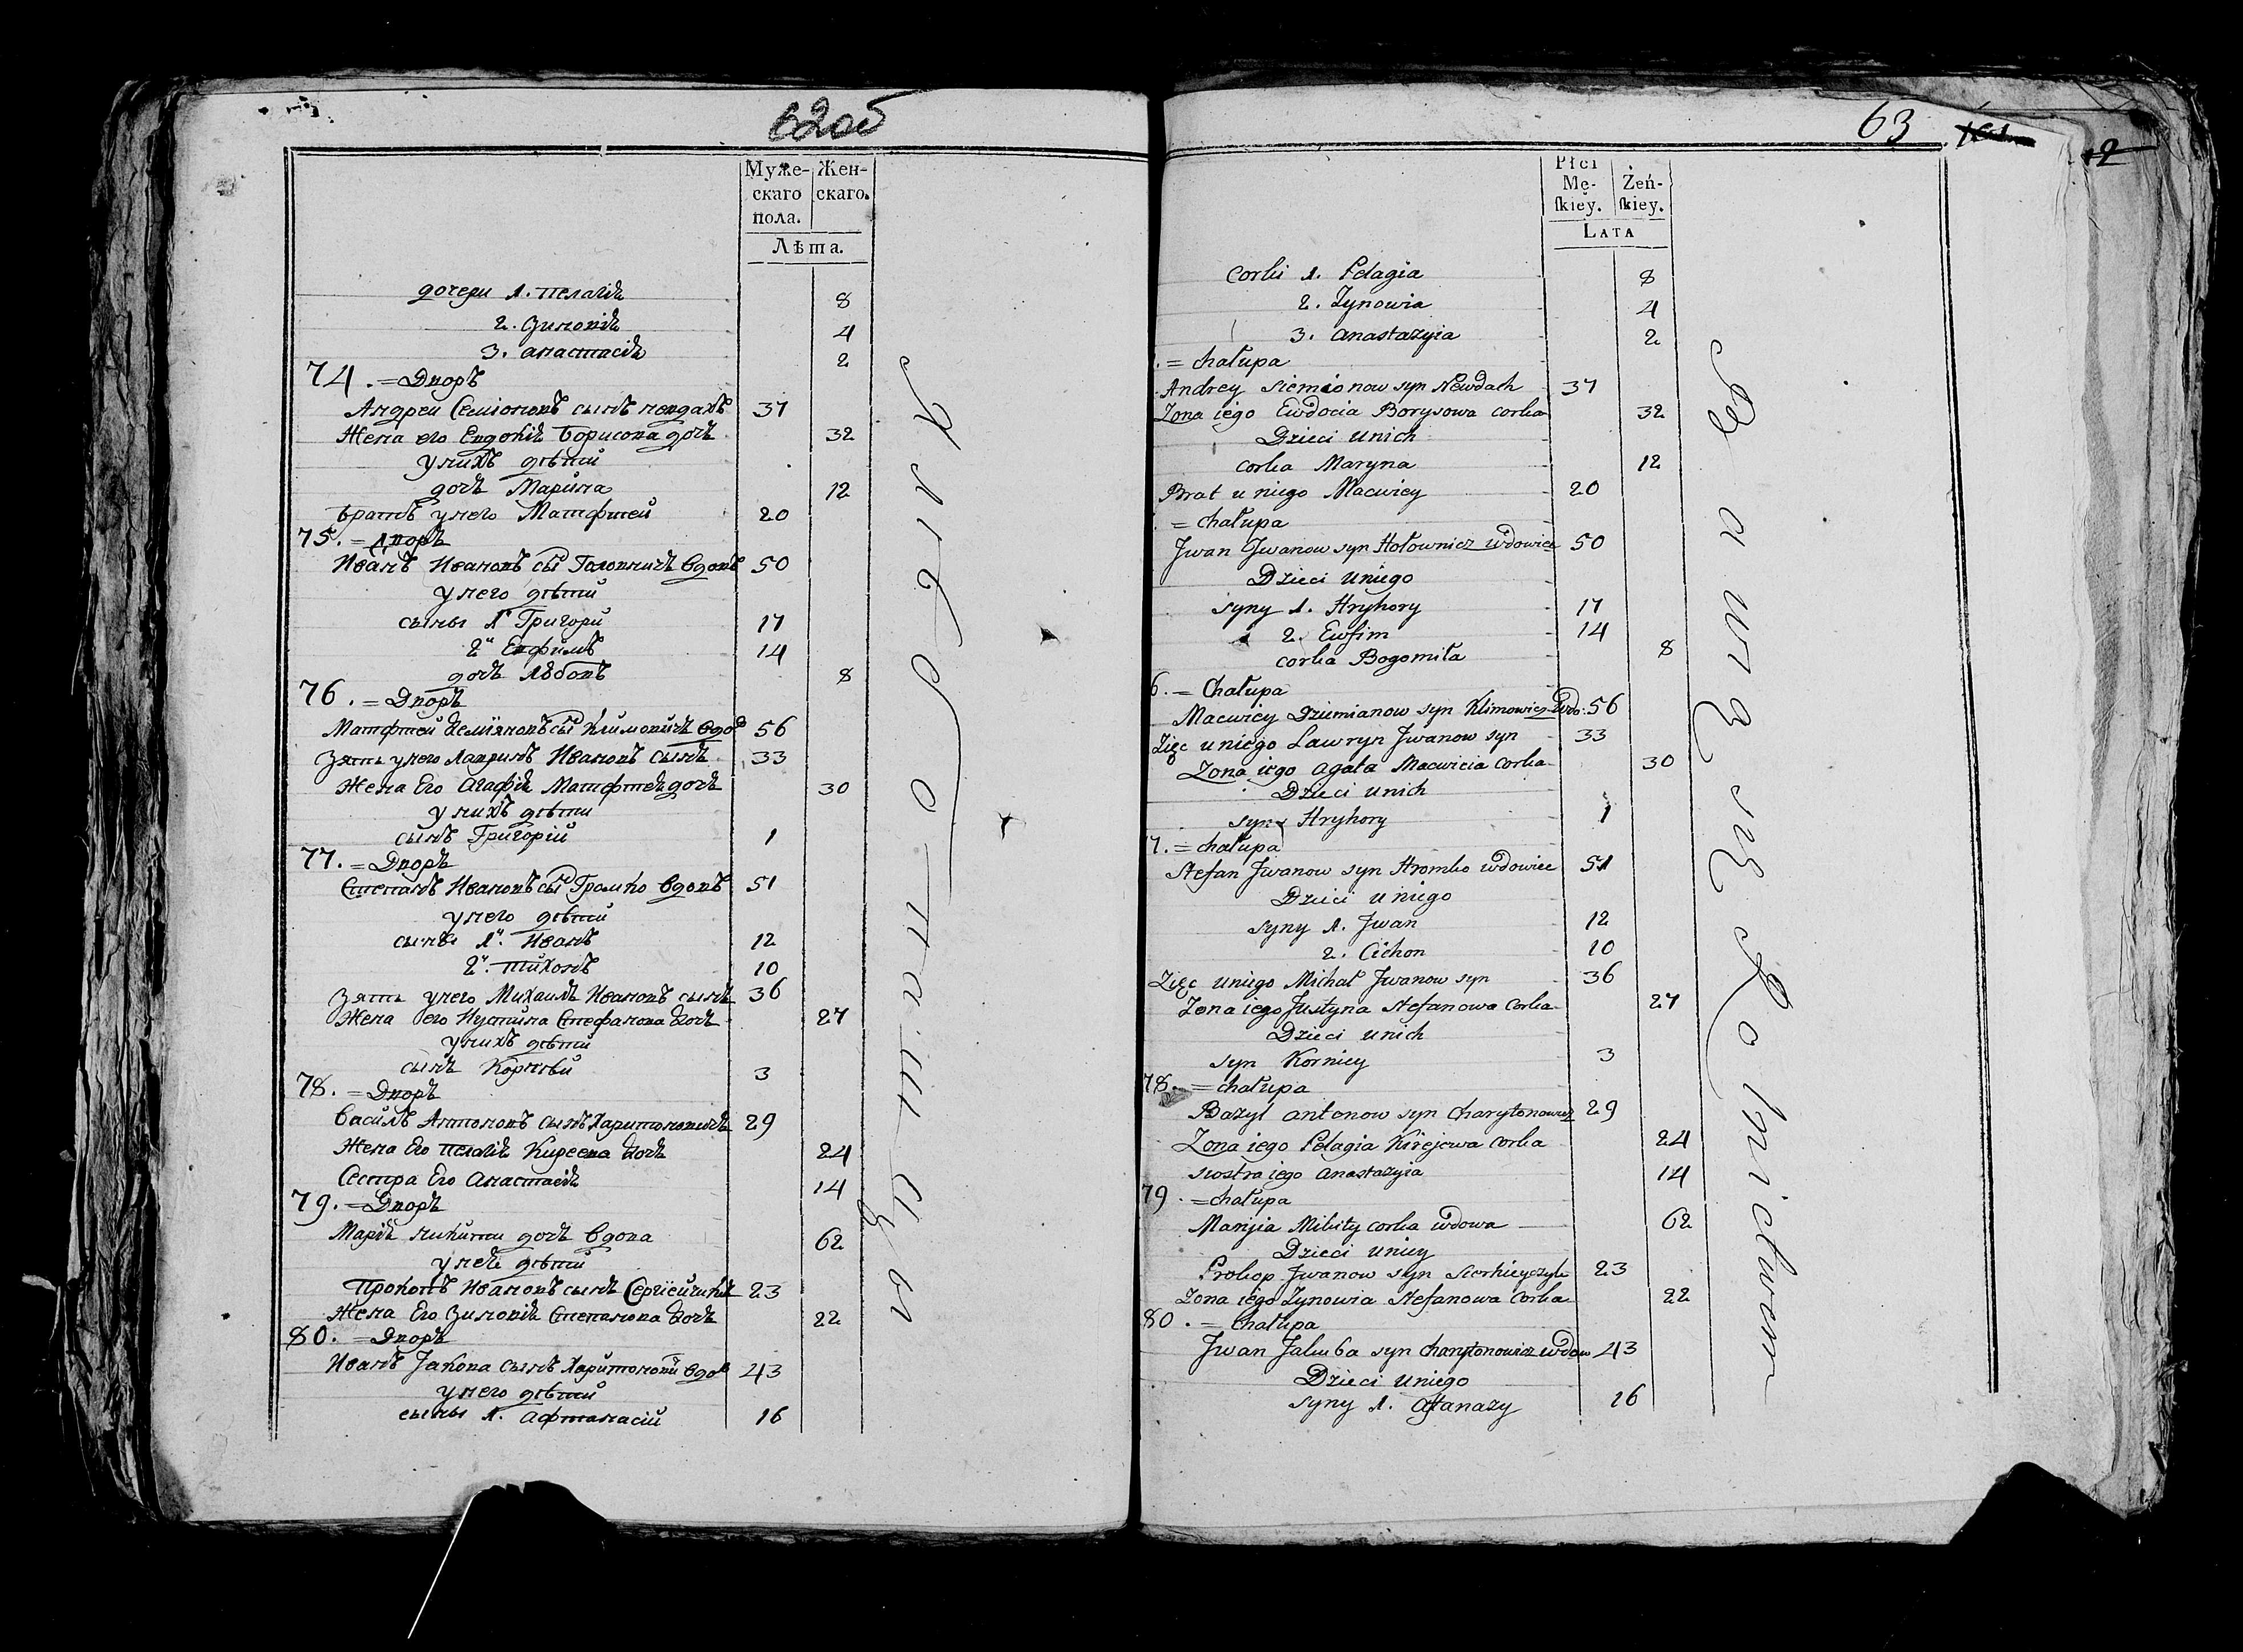 62об
Муже- Жен-
скаго скаго.
пола.
Лѣта.
дочери 1. Пелагія 8
2. Зиновія 4
3. Анастасія 2
74. = Дворъ
Андреи Семіоновъ сынъ Невдахъ 37
Жена его Евдокія Борисова дочь 32
у нихъ дѣти
дочь Марина 12
Братъ у него Матфтей 20
75. = Дворъ
Иванъ Ивановъ сы Головничъ Вдовъ 50
у него дѣти
сыны 1й Григори 17
2й Евфимъ 14
дочь Любовь 8
76. = Дворъ
Матфтей Деміяновъ сы Климовичъ Вдов 56
Зять у него Лавринъ Ивановъ Сынъ 33
Жена Его Агафія Матфтея дочь 30
у нихъ дѣти
сынъ Григорій 1
77. = Дворъ
Степанъ Ивановъ сы Громко Вдовъ 51
у него дѣти
сыны 1й. Иванъ 12
2й. Тихонъ 10
Зять у него Михаилъ Ивановъ сынъ 36
Жена его Иустина Стефанова дочь 27
у нихъ дѣти
сынъ Корнѣй 3
78. = Дворъ
Василъ Антоновъ сынъ Харитоновичъ 29
Жена Его Пелагія Киреева дочь 24
Сестра Его Анастасія 14
79. = Дворъ
Марія Никити дочь Вдова 62
у неѣ дѣти
Прокопъ Ивановъ сынъ Сергіейчикъ 23
Жена Его Зиновія Степанова дочь 22
80. = Дворъ
Иванъ Јакова Сынъ Харитонови Вдов 43
у него дѣти
сыны 1. Афтанасій 16
63
2
Płci
Mę- Żeń-
skiey. skiey.
Lata
Corki 1. Pelagia 8
2. Zynowia 4
3. Anastazyia 2
. = Chałupa
Andrey Siemionow syn Newdach 37
Zona iego Ewdocia Borysowa Corka 32
Dzieci u nich
corka Maryna 12
Brat u niego Macwiey 20
= Chałupa
Jwan Jwanow syn Hołownicz wdowiec 50
Dzieci u niego
syny 1. Hryhory 17
2. Ewfim 14
corka Bogomiła 8
6. = Chałupa
Macwiey Dziemianow syn Klimowicz Wdo. 56
Zięc u niego Lawryn Jwanow syn 33
Zona iego Agata Macwieia Corka 30
Dzieci u nich
syn Hryhory 1
7. = Chałupa
Stefan Jwanow syn Hromko wdowiec 51
Dzieci u niego
syny 1. Jwan 12
2. Cichon 10
Zięc u niego Michał Jwanow syn 36
Zona iego Justyna Stefanowa Corka 27
Dzieci u nich
syn Korniey 3
78. = Chałupa
Bazyl Antonow syn Charytonowicz 29
Zona iego Pelagia Kirejewa Corka 24
siostra iego Anastazyia 14
79. = Chałupa
Maryia Mikity corka wdowa 62
Dzieci u niey
Prokop Jwanow syn Sierhieyczyk 23
Zona iego Zynowia Stefanowa Corka 22
80. = Chałupa
Jwan Jakuba syn Charytonowicz Wdow 43
Dzieci u niego
syny 1. Afanazy 16